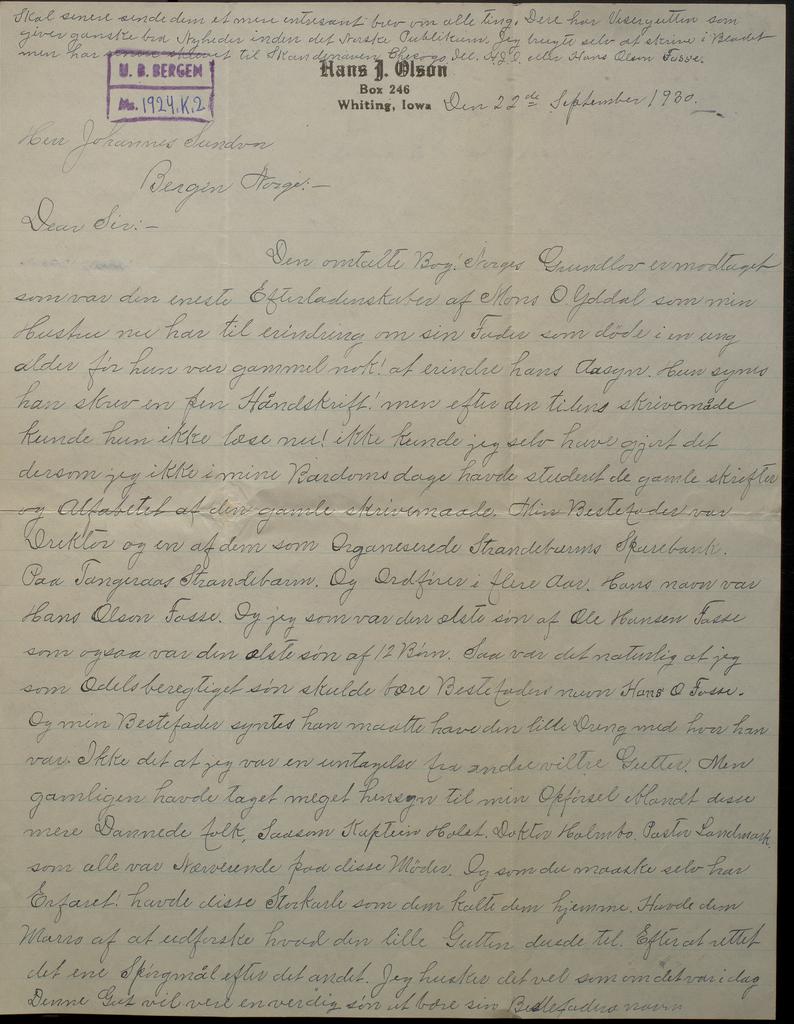 Skal senere sende dem et mere entresant brev om alle ting. Dere har Visergutten som
giver ganske bra Nyheder inden det Norske Publikum. Jeg brugte selv at skrive i Bladet
men har senere skrevet til Skandenaven Checogo Ill. H.J.O. eller Hans Olsen Fosse.
U. B. BERGEN
Ms. 1924.K.2
Hans J. Olson
Box 246
Whiting, Iowa
Den 22de September 1930.
Herr Johannes Sundvor
Bergen Norge:-
Dear Sir:-
Den omtalte Bog! Norges Grundlov er modtaget
som var den eneste Efterladenskaber af Mons O. Yddal som min
Hustru nu har til erindring om sin Fader som döde i en ung
alder för hun var gammel nok! at erindre hans Aasyn. Hun synes
han skrev en pen Håndskrift! men efter den tidens skrivemåde
kunde hun ikke læse nu! ikke kunde jeg selv have gjort det
dersom jeg ikke i mine Barndoms dage havde studeret de gamle skrifter
og Alfabetet af den gamle skrivemaade. Min Bestefader var
Drektör og en af dem som Organeserede Strandebarms Sparebank.
Paa Tangeraas Strandebarm. Og Ordförer i flere Aar. Hans navn var
Hans Olson Fosse. Og jeg som var den elste sön af Ole Hansen Fosse
som ogsaa var den elste sön af 12 Börn. Saa var det naturlig at jeg
som Odelsberegtiget sön skulde bære Bestefaders navn Hans O Fosse.
Og min Bestefader syntes han maatte have den lille Dreng med hvor han
var. Ikke det at jeg var en untagelse fra andre viltre Gutter. Men
gamligen havde taget meget hensyn til min Opförsel blandt disse
mere Dannede folk, Saasom Kaptein Holst. Doktor Holmbo. Pastor Landmark.
som alle var Nærverende paa disse Möder. Og som du maaske selv har
Erfaret! havde disse Storkarle som dem kalte dem hjemme. Havde dem
Morro af at udforske hvad den lille Gutten dude til. Efter at rettet
det ene Spörgmål efter det andet. Jeg husker det vel som om det var i dag
Denne Gut vil være en verdig sön at bære sin Bestefaders navn